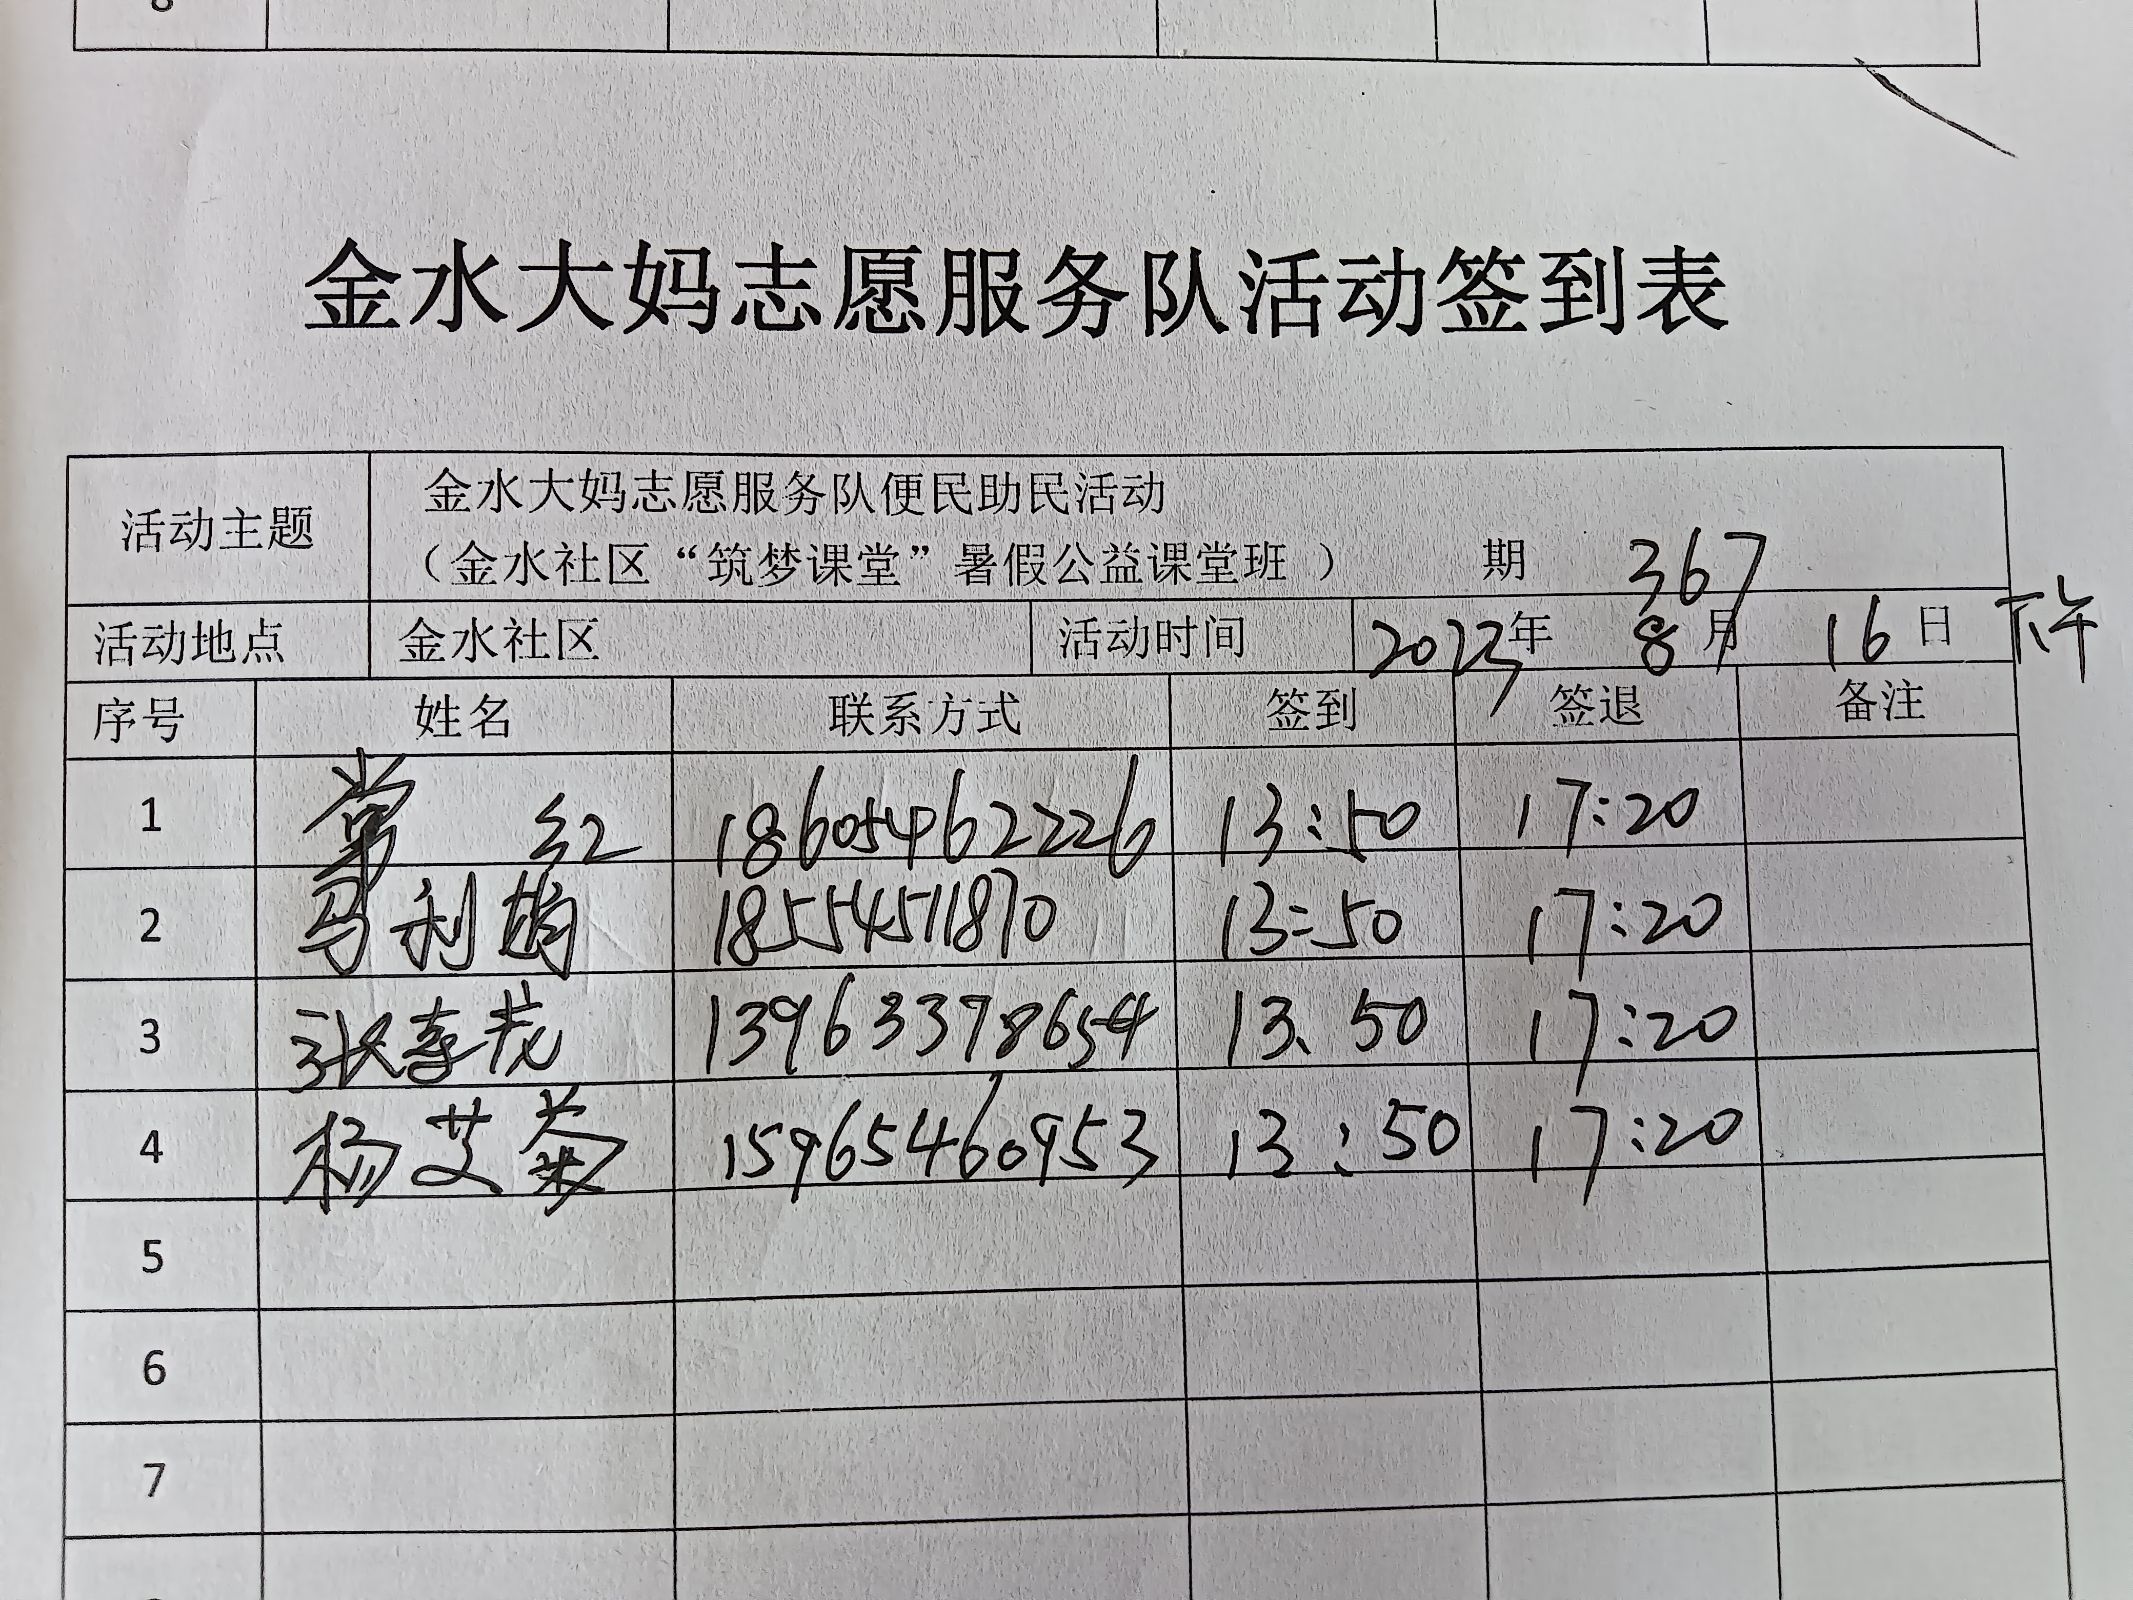 8
金水大妈志愿服务队活动签到表
活动主题 金水大妈志愿服务队便民助民活动
（金水社区“筑梦课堂”暑假公益课堂班 ） 期 367
活动地点 金水社区 活动时间 2023年 8月 16日 下午
序号 姓名 联系方式 签到 签退 备注
1 常 红 18605462226 13:50 17:20
2 马利娟 18554511870 13:50 17:20
3 张 13963378654 13.50 17:20
4 杨艾菊 15965460953 13:50 17:20
5
6
7